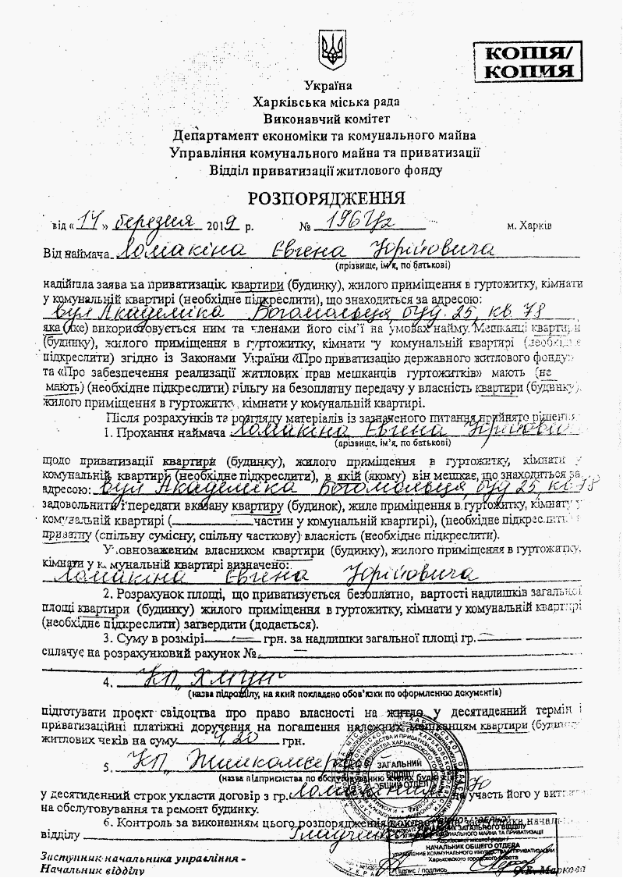 КОПІЯ/
КОПИЯ
Україна
Харківська міська рада
Виконавчий комітет
Департамент економіки та комунального майна
Управління комунального майна та приватизації
Відділ приватизації житлового фонду
РОЗПОРЯДЖЕННЯ
від « 14 » березня 2019 р. № м. Харків
Від наймача Ломакіна Євгена Юрійовича
(прізвище, ім'я, по батькові)
надійшла заява на приватизацію квартири (будинку), жилого приміщення в гуртожитку, кімнати
у комунальній квартирі (необхідне підкреслити), що знаходиться за адресою:
вул Академіка Богомольця буд. 25, кв. 78
яка (яке) використовується ним та членами його сім'ї на умовах найму. Мешканці квартири
(будинку), жилого приміщення в гуртожитку, кімнати у комунальній квартирі (необхідне
підкреслити) згідно із Законами України «Про приватизацію державного житлового фонду»
та «Про забезпечення реалізації житлових прав мешканців гуртожитків» мають (не
мають) (необхідне підкреслити) пільгу на безоплатну передачу у власність квартири (будинку),
жилого приміщення в гуртожитку, кімнати у комунальній квартирі.
Після розрахунків та розгляду матеріалів із зазначеного питання прийнято рішення
1. Прохання наймача Ломакіна Євгена Юрійовича
(прізвище, ім'я, по батькові)
щодо приватизації квартири (будинку), жилого приміщення в гуртожитку, кімнати у
комунальній квартирі (необхідне підкреслити), в якій (якому) він мешкає, що знаходиться за
адресою: вул Академіка Богомольця, буд 25 кв 78
задовольнити і передати вказану квартиру (будинок), жиле приміщення в гуртожитку, кімнату у
комунальній квартирі ( частин у комунальній квартирі), (необхідне підкреслити)
приватну (спільну сумісну, спільну часткову) власність (необхідне підкреслити).
Уповноваженим власником квартири (будинку), жилого приміщення в гуртожитку,
кімнати у комунальній квартирі визначено:
Ломакіна Євгена Юрійовича
2. Розрахунок площі, що приватизується безоплатно, вартості надлишків загальної
площі квартири (будинку) жилого приміщення в гуртожитку, кімнати у комунальній квартирі
(необхідне підкреслити) затвердити (додається).
3. Суму в розмірі — грн. за надлишки загальної площі гр. —
сплачує на розрахунковий рахунок №
4. КП
(назва підрозділу, на який покладено обов'язки по оформленню документів)
підготувати проект свідоцтва про право власності на житло у десятиденний термін і
приватизаційні платіжні доручення на погашення належних мешканцям квартири (будинку)
житлових чеків на суму грн.
5. КП
(назва підприємства по обслуговуванню
у десятиденний строк укласти договір з гр. на участь його у витратах
на обслуговування та ремонт будинку.
6. Контроль за виконанням цього розпорядження
відділу
Заступник начальника управління -
Начальник відділу
ЗАГАЛЬНИЙ
ВІДДІЛ
ОБЩИЙ ОТДЕЛ
НАЧАЛЬНИК ОБЩЕГО ОТДЕЛА
Підпис / подпись
Маркова